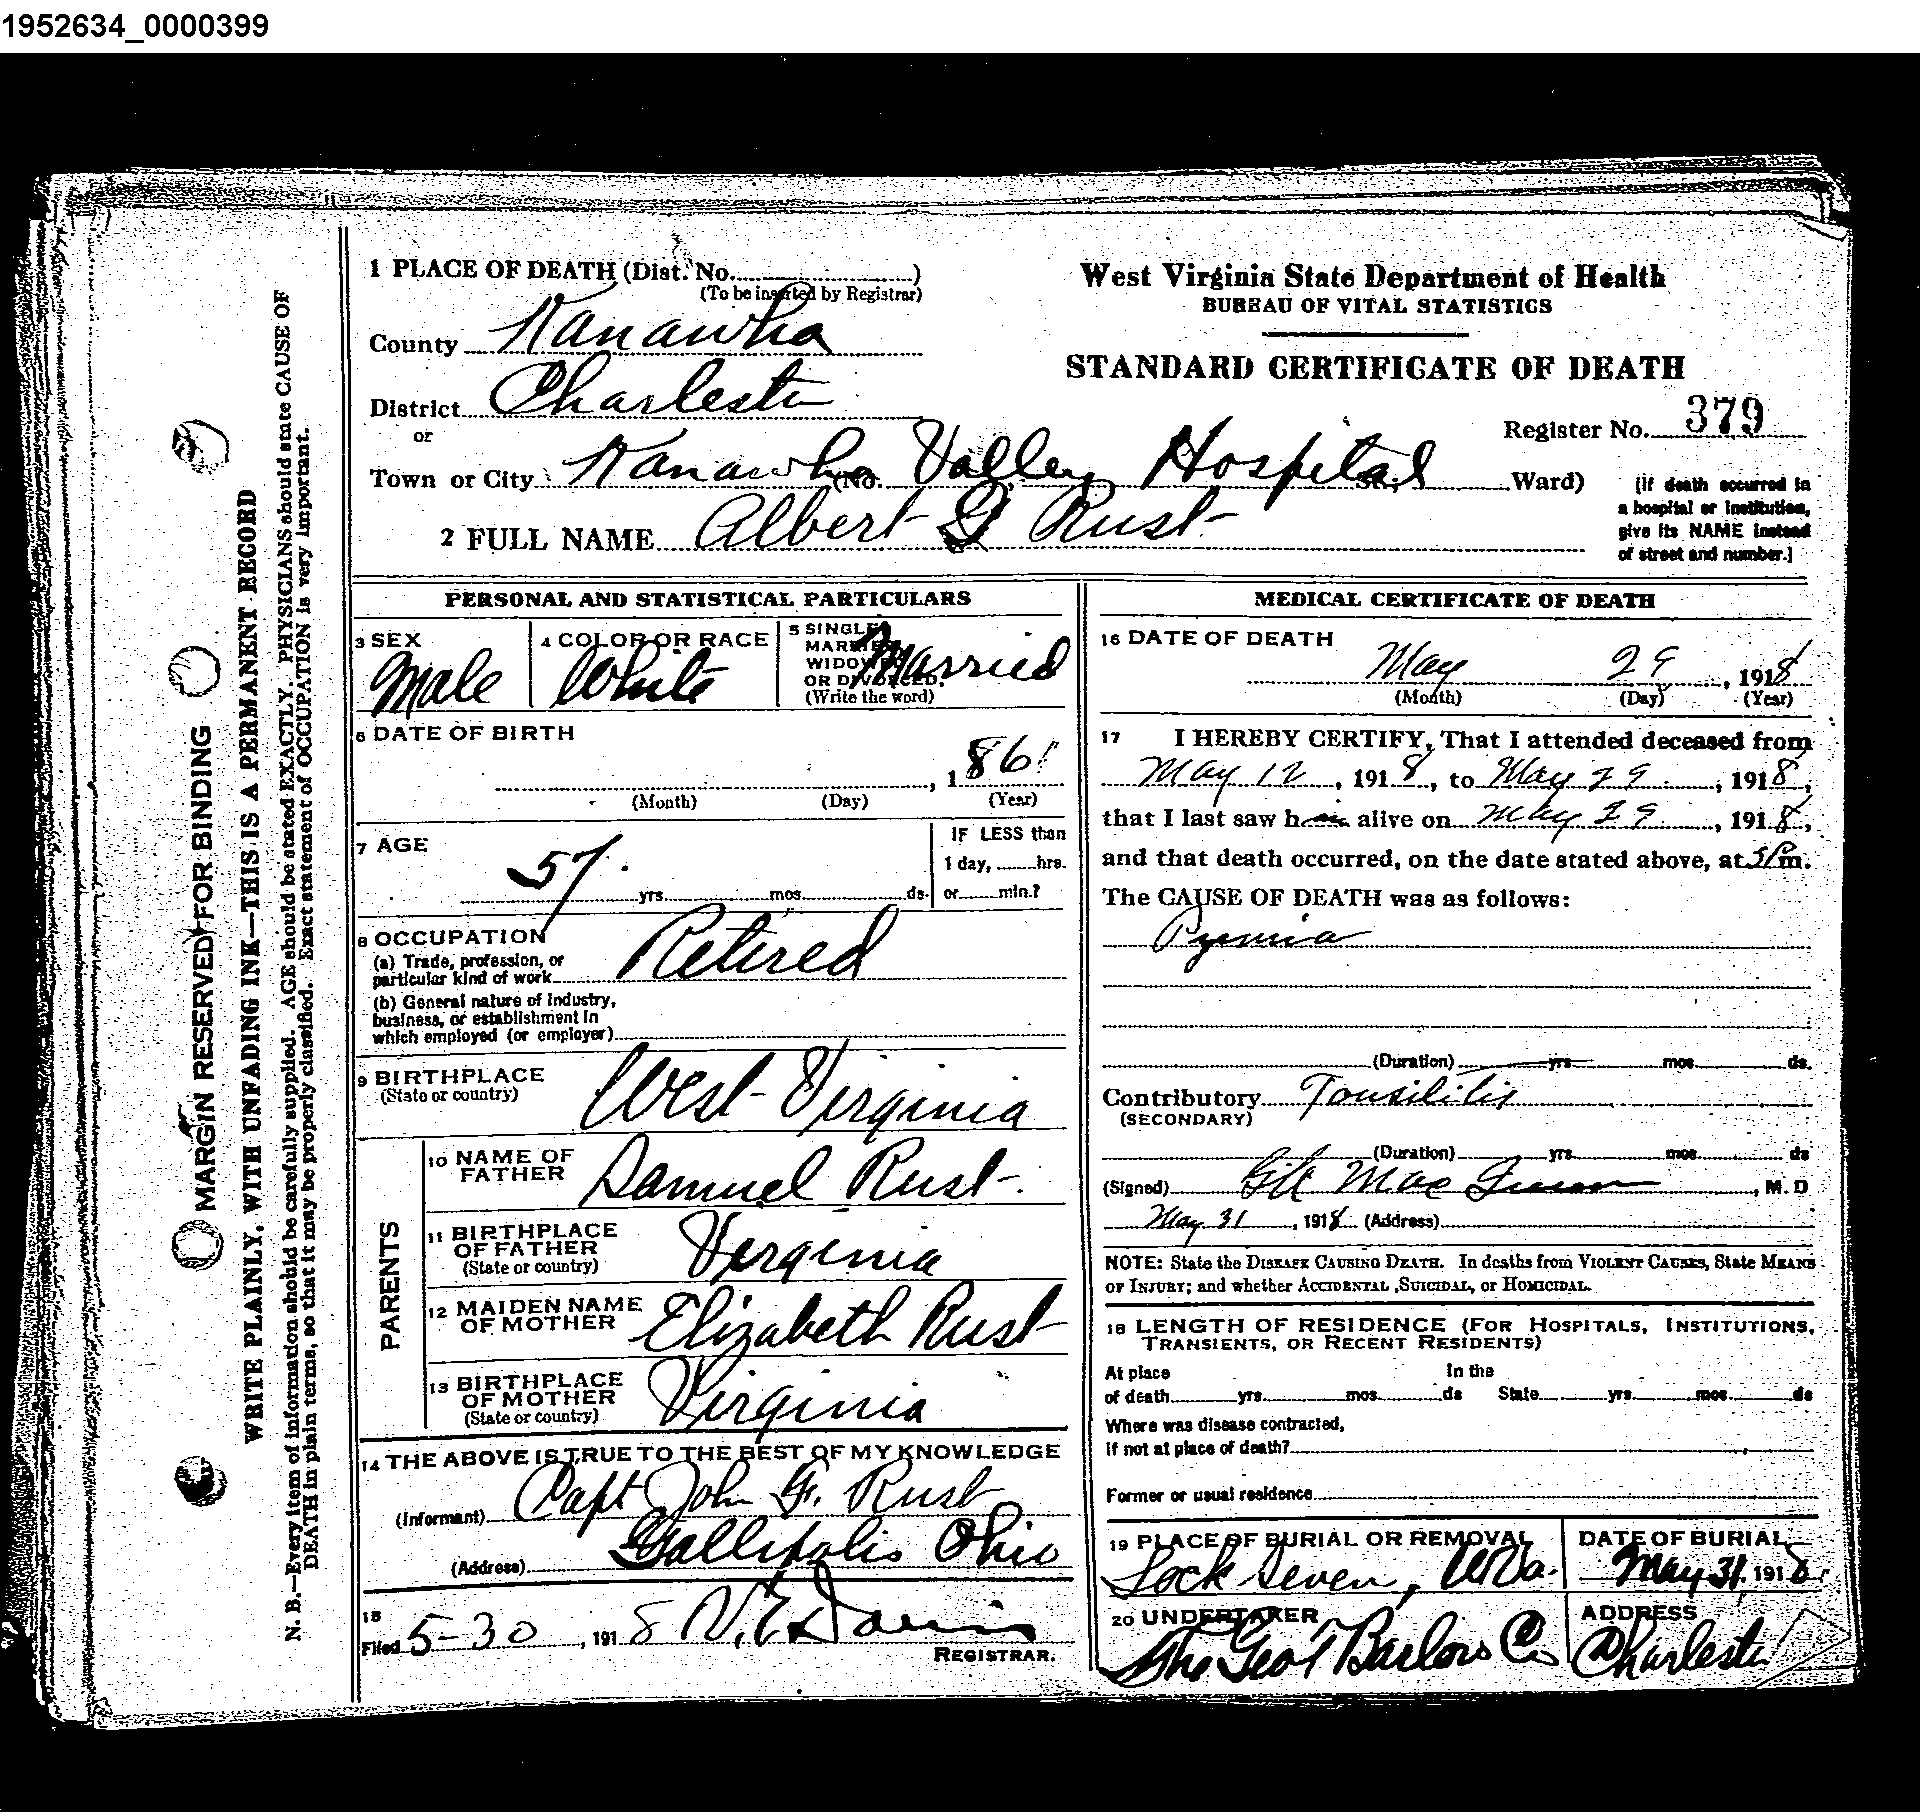 1952634_0000399
1 PLACE OF DEATH (Dist. No. )
(To be inserted by Registrar)
County Kanawha
District Charleston
or
Town or City Kanawha Valley Hospital (No. St.; Ward)
2 FULL NAME Albert G Rust
West Virginia State Department of Health
BUREAU OF VITAL STATISTICS
STANDARD CERTIFICATE OF DEATH
Register No. 379
(If death occurred in
a hospital or institution,
give its NAME instead
of street and number.]
PERSONAL AND STATISTICAL PARTICULARS
3 SEX
Male
4 COLOR OR RACE
White
5 SINGLE
MARRIED
WIDOWED
OR DIVORCED.
(Write the word)
Married
6 DATE OF BIRTH
, 1861
(Month) (Day) (Year)
7 AGE
57 yrs mos ds.
IF LESS than
1 day, hrs.
or min.?
8 OCCUPATION
(a) Trade, profession, or
particular kind of work Retired
(b) General nature of Industry,
business, or establishment in
which employed (or employer)
9 BIRTHPLACE
(State or country)
West Virginia
PARENTS
10 NAME OF
FATHER
Samuel Rust
11 BIRTHPLACE
OF FATHER
(State or country)
Virginia
12 MAIDEN NAME
OF MOTHER
Elizabeth Rust
13 BIRTHPLACE
OF MOTHER
(State or country)
Virginia
14 THE ABOVE IS TRUE TO THE BEST OF MY KNOWLEDGE
(Informant) Capt John G. Rust
(Address) Gallipolis Ohio
15
Filed 5-30, 1918 V. E. Davis
REGISTRAR.
MEDICAL CERTIFICATE OF DEATH
16 DATE OF DEATH
May 29, 1918
(Month) (Day) (Year)
17 I HEREBY CERTIFY, That I attended deceased from
May 12, 1918, to May 29, 1918,
that I last saw him alive on May 29, 1918,
and that death occurred, on the date stated above, at 5 P m.
The CAUSE OF DEATH was as follows:
Pyemia
(Duration) yrs mos ds.
Contributory Tonsilitis
(SECONDARY)
(Duration) yrs mos ds
(Signed) Mac , M. D
May 31, 1918 (Address)
NOTE: State the DISEASE CAUSING DEATH. In deaths from VIOLENT CAUSES, State MEANS
OF INJURY; and whether ACCIDENTAL ,SUICIDAL, or HOMICIDAL.
18 LENGTH OF RESIDENCE (FOR HOSPITALS, INSTITUTIONS,
TRANSIENTS, OR RECENT RESIDENTS)
At place In the
of death yrs. mos. ds State yrs. mos. ds
Where was disease contracted,
if not at place of death?
Former or usual residence
19 PLACE OF BURIAL OR REMOVAL
Lock Seven, W Va.
DATE OF BURIAL
May 31, 1918
20 UNDERTAKER
The Geo T Barlow Co
ADDRESS
Charleston
MARGIN RESERVED FOR BINDING
WRITE PLAINLY, WITH UNFADING INK—THIS IS A PERMANENT RECORD
N. B.—Every item of information should be carefully supplied. AGE should be stated EXACTLY. PHYSICIANS should state CAUSE OF
DEATH in plain terms, so that it may be properly classified. Exact statement of OCCUPATION is very important.